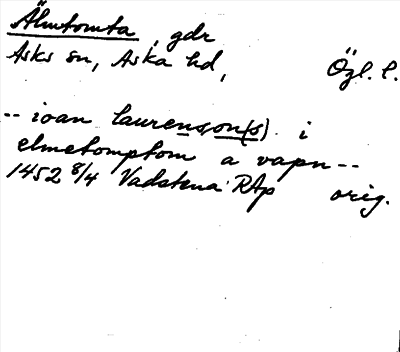 Älmtomta, gdr
Asks sn, Aska hd, Ögl. l.
-- ioan laurenson(s) i
elmetomptom a vapn --
1452 8/4 Vadstena RAp orig.